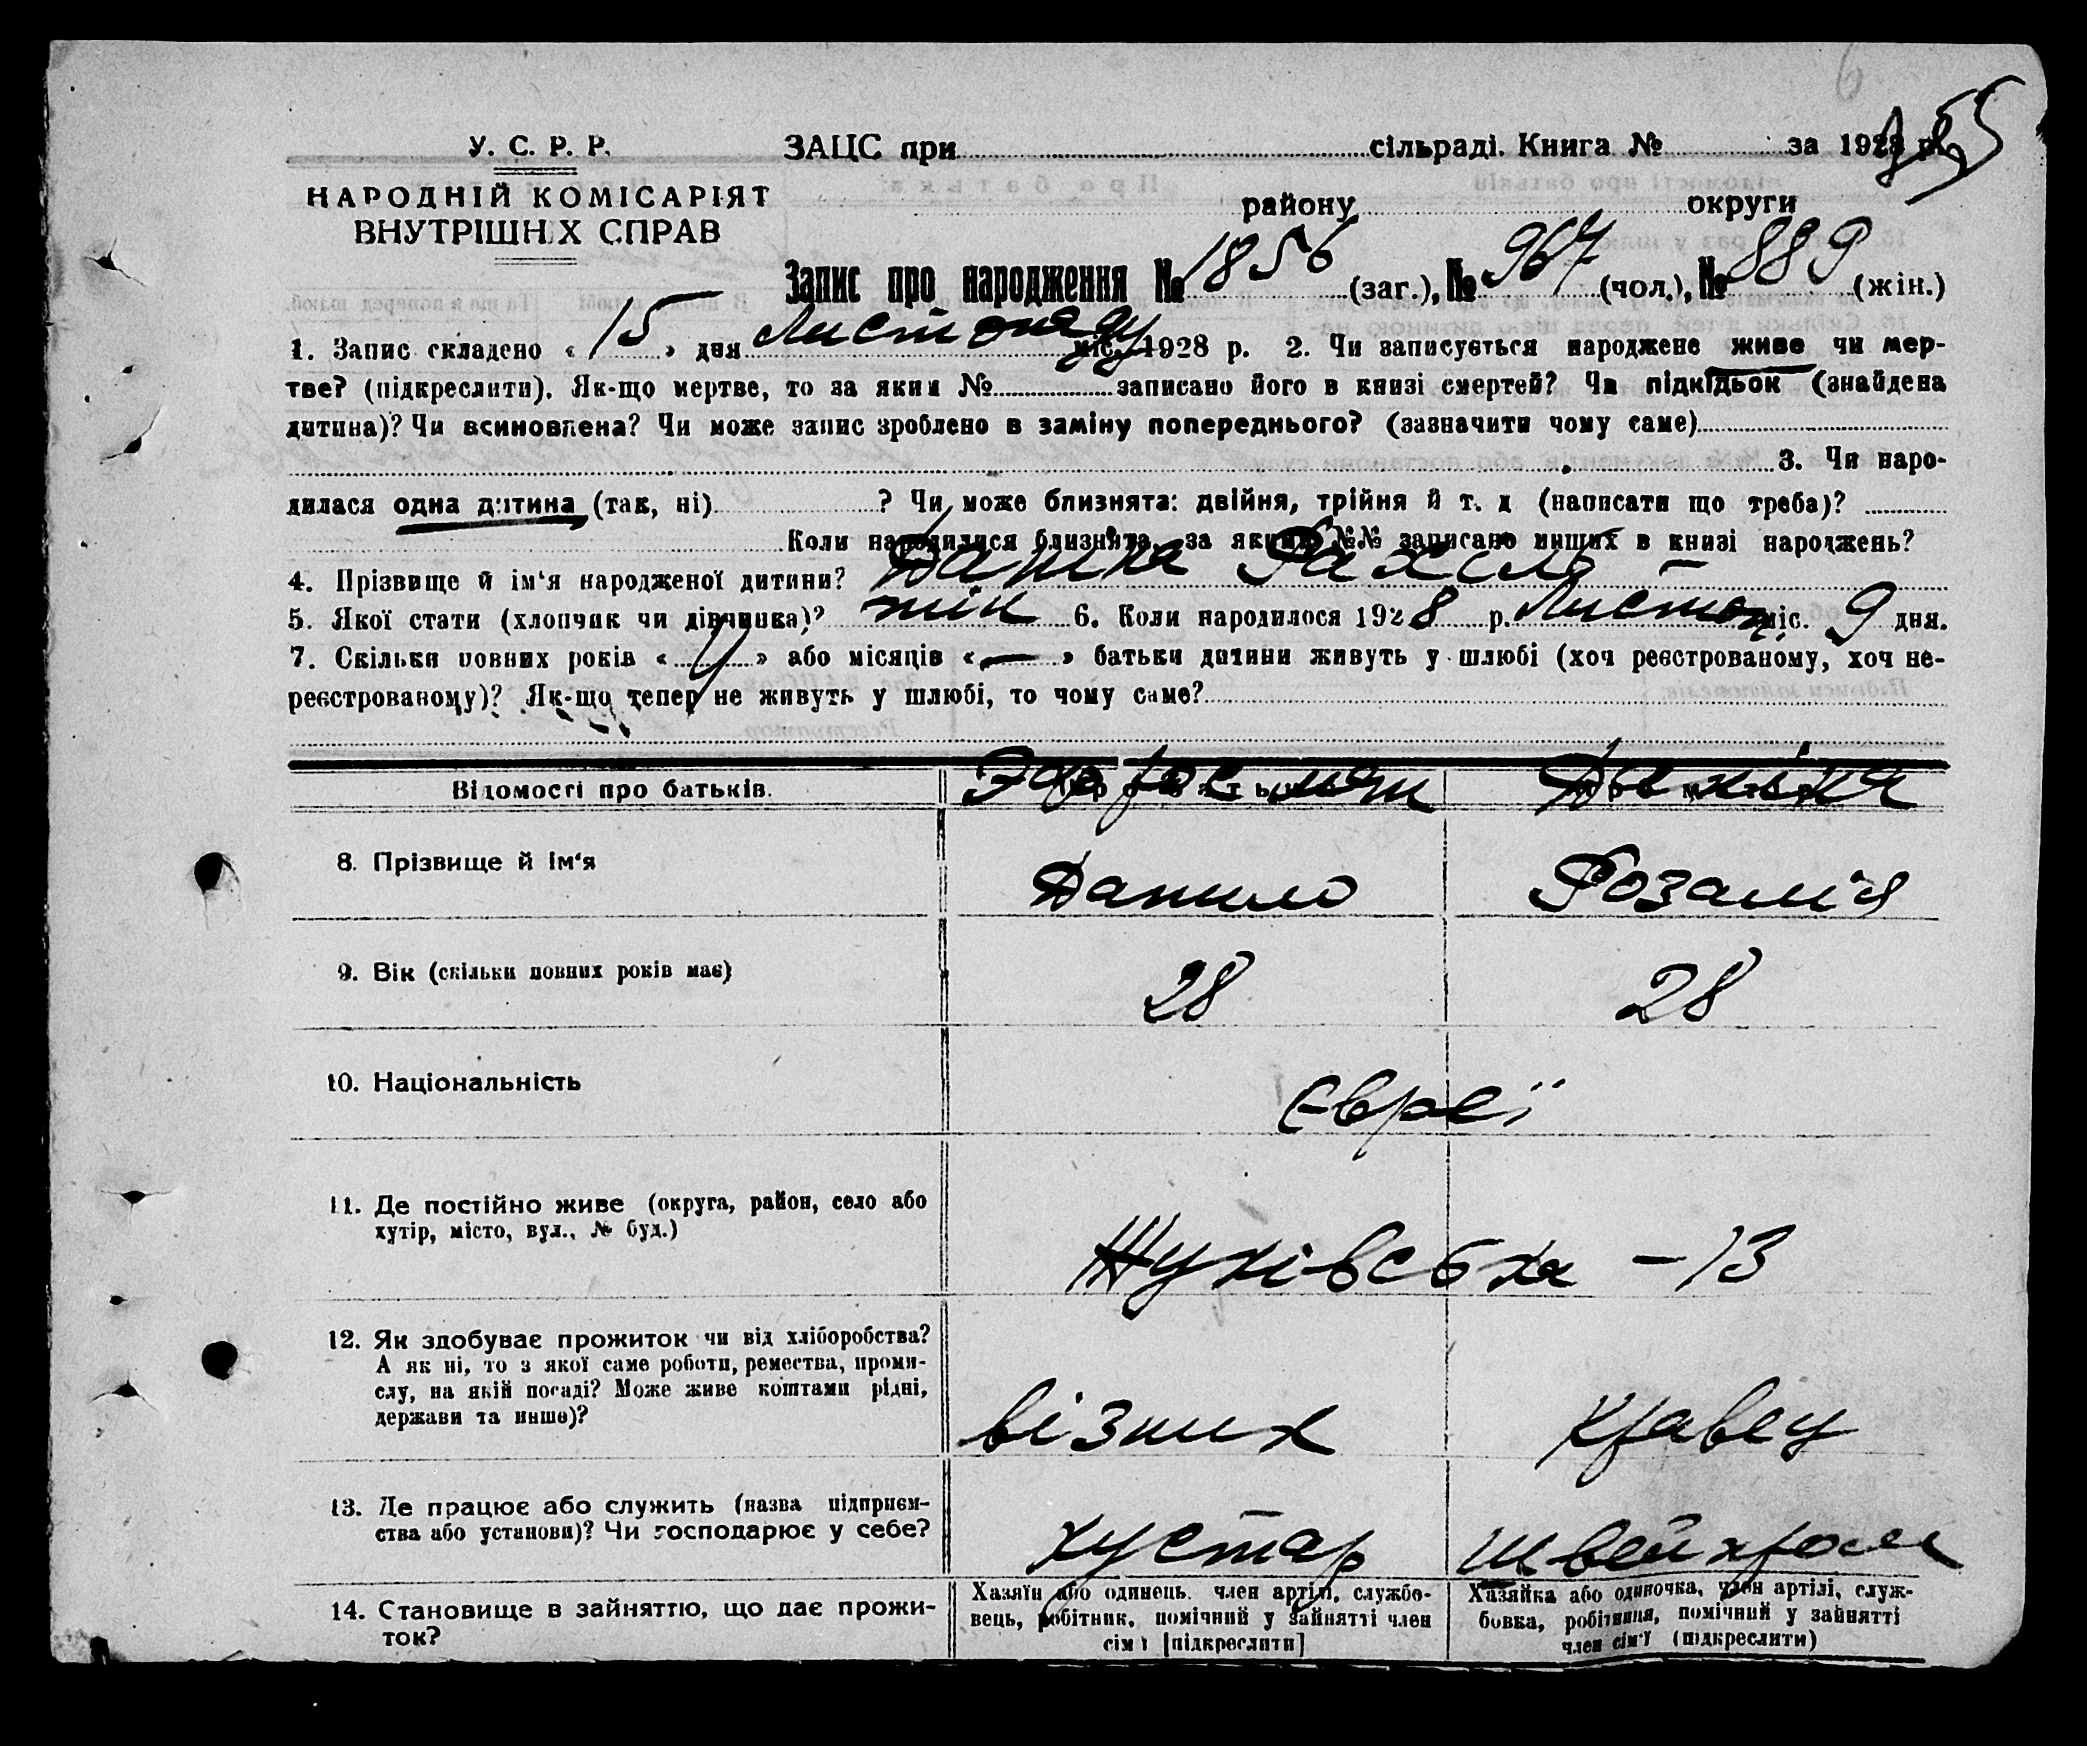 6
У. С. Р. Р.
ЗАЦС при сільраді. Книга № за 1928 р.
НАРОДНІЙ КОМІСАРІЯТ
ВНУТРІШНІХ СПРАВ
району округи
Запис про народження № 1856 (заг.), № 967 (чол.), № 889 (жін.)
1. Запис складено « 15 » дня Листопаду міс. 1928 р. 2. Чи записується народжене живе чи мер-
тве? (підкреслити). Як-що мертве, то за яким № записано його в книзі смертей? Чи підкідьок (знайдена
дитина)? Чи всиновлена? Чи може запис зроблено в заміну попереднього? (зазначити чому саме)
3. Чи наро-
дилася одна дитина (так, ні) ? Чи може близнята: двійня, трійня й т. д (написати що треба)?
Коли народилися близнята, за якими №№ записано инших в книзі народжень?
4. Прізвище й ім‘я народженої дитини? Рахиль –
5. Якої стати (хлопчик чи дівчинка)? жін 6. Коли народилося 1928 р. Листоп міс. 9 дня.
7. Скільки повних років « » або місяців « — » батьки дитини живуть у шлюбі (хоч реєстрованому, хоч не-
реєстрованому)? Як-що тепер не живуть у шлюбі, то чому саме?
Відомості про батьків.
8. Прізвище й ім‘я Данило Розалія
9. Вік (скільки повних років має) 28 28
10. Національність Євреї
11. Де постійно живе (округа, район, село або
хутір, місто, вул., № буд.) Жуківська – 13
12. Як здобуває прожиток чи від хліборобства?
А як ні, то з якої саме роботи, ремества, проми-
слу, на якій посаді? Може живе коштами рідні,
держави та инше)? візник кравец
13. Де працює або служить (назва підприєм-
ства або установи)? Чи господарює у себе? кустар швейкром
14. Становище в зайняттю, що дає прожи-
ток?
Хазяїн або одинець, член артілі, службо-
вець, робітник, помічний у зайнятті член
сім‘ї [підкреслити]
Хазяйка або одиночка, член артілі, служ-
бовка, робітниця, помічний у зайнятті
член сім‘ї (підкреслити)